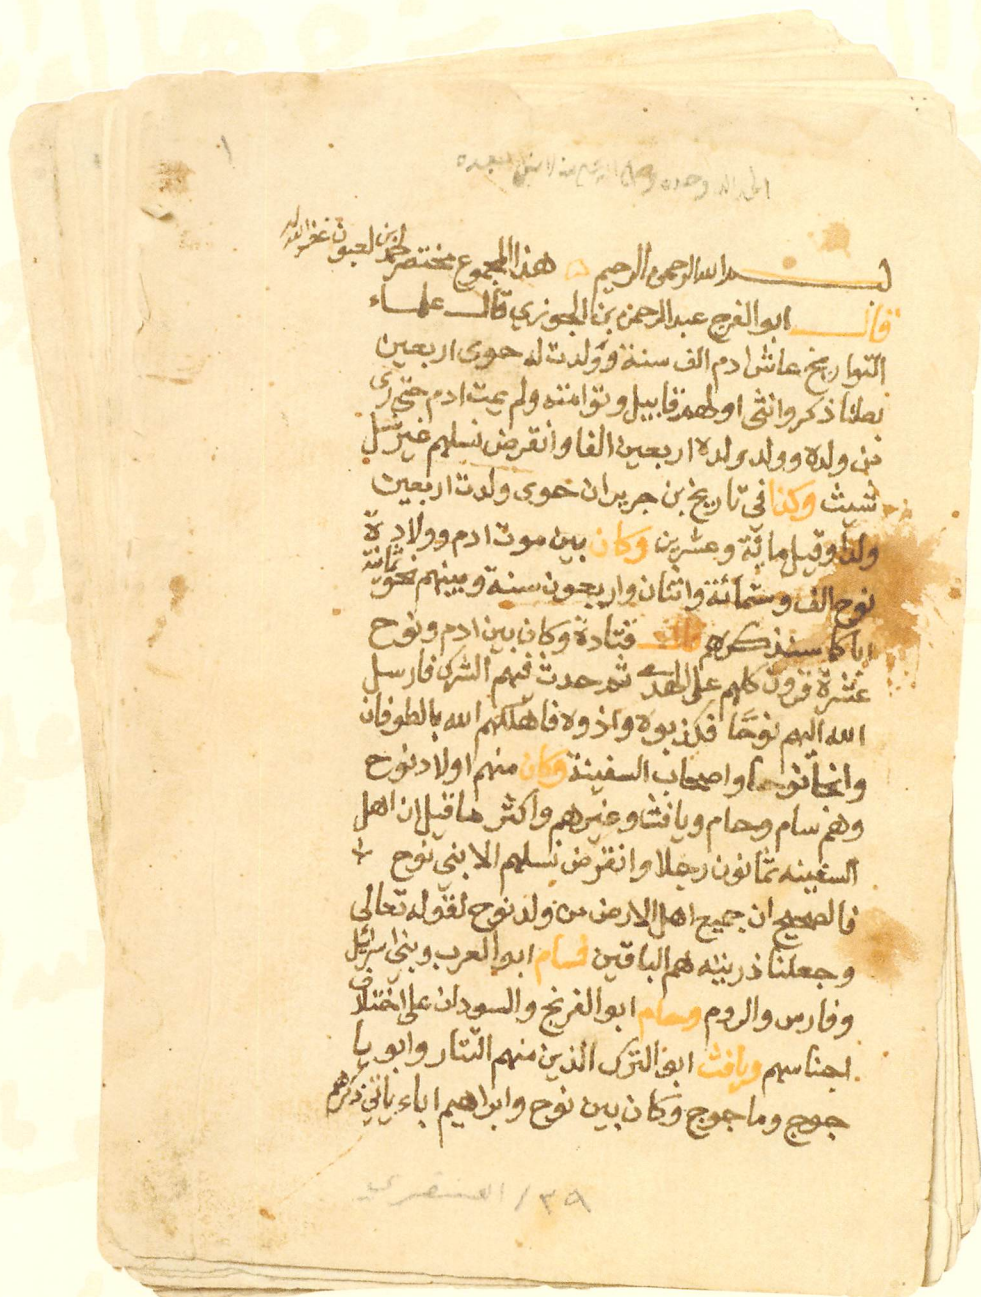 الحمد لله وحده
بسم الله الرحمن الرحيم هذا المجموع مختصر احمد بن لعبون غفر الله له
قال ابو الفرج عبد الرحمن بن الجوزي قال علماء
التواريخ عاش ادم الف سنة وولدت له حوى اربعين
بطنا ذكر وانثى اولهم قابيل وتوامته ولم يمت ادم حتى رى
من ولده وولد ولده اربعين الفا وانقرض نسلهم غير نسل
شيث وكذا في تاريخ بن جرير ان حوى ولدت اربعين
ولدا وقيل ماية وعشرين وكان بين موت ادم وولادة
نوح الف وستمائة واثنان واربعون سنة وبينهم نحو ثمانية
ابا كما سنذكرهم قال قتادة وكان بين ادم ونوح
عشرة قرون كلهم على الهدى ثم حدث فيهم الشرك فارسل
الله اليهم نوحا فكذبوه واذوه فاهلكهم الله بالطوفان
وانجا نوحا واصحاب السفينة وكان منهم اولاد نوح
وهم سام وحام ويافث وغيرهم واكثر ما قيل ان اهل
السفينه ثمانون رجلا وانقرض نسلهم الا بني نوح
فالصحيح ان جميع اهل الارض من ولد نوح لقوله تعالى
وجعلنا ذريته هم الباقين فسام ابو العرب وبني اسرائيل
وفارس والروم وحام ابو الفرنج والسودان على اختلاف
اجناسهم ويافث ابو الترك الذين منهم التتار وابو يا
جوج وماجوج وكان بين نوح وابراهيم اباء ياتي ذكرهم
٣٩ / العنصري
١